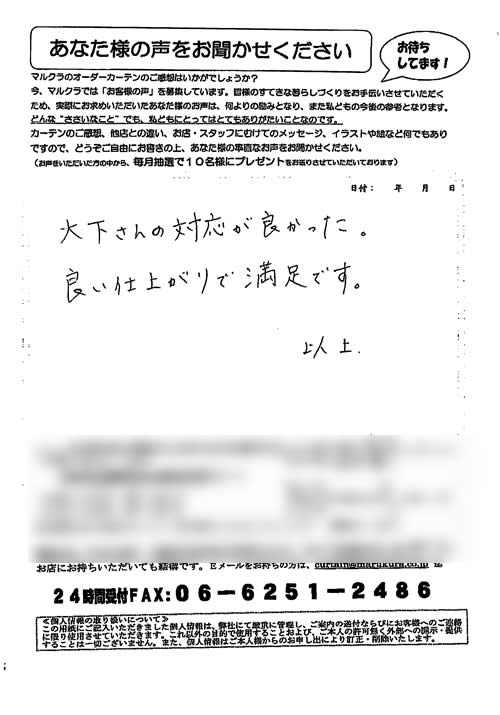 あなた様の声をお聞かせください
お待ち
してます!
マルクラのオーダーカーテンのご感想はいかがでしょうか?
今、マルクラでは「お客様の声」を募集しています。皆様のすてきな暮らしづくりをお手伝いさせていただく
ため、実際にお求めいただいたあなた様のお声は、何よりの励みとなり、また私どもの今後の参考となります。
どんな“ささいなこと”でも、私どもにとってはとてもありがたいことなのです。
カーテンのご感想、他店との違い、お店・スタッフにむけてのメッセージ、イラストや絵など何でもあり
ですので、どうぞご自由にお書きの上、あなた様の率直なお声をお聞かせください。
(お声をいただいた方の中から、毎月抽選で10名様にプレゼントをお送りさせていただいております)
日付: 年 月 日
大下さんの対応が良かった。
良い仕上がりで満足です。
以上.
お店にお持ちいただいても結構です。Eメールをお持ちの方は、curtain@marukura.co.jp
24時間受付FAX:06-6251-2486
<個人情報の取り扱いについて>
この用紙にご記入いただきました個人情報は、弊社にて厳重に管理し、ご案内の送付ならびにお客様へのご連絡
に限り使用させていただきます。これ以外の目的で使用することおよび、ご本人の許可無く外部への開示・提供
することは一切ございません。また、個人情報はご本人様からのお申し出により訂正・削除いたします。